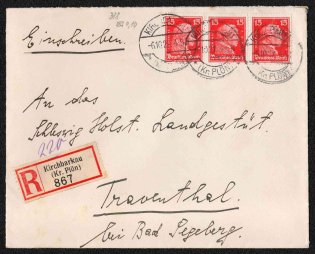 15 15 15
Deutsches Reich Deutsches Reich Deutsches Reich
(Kr. PLÖN)
Einschreiben.
An das
Schleswig Holst. Landgestüt.
220
R
Kirchbarkau
(Kr. Plön)
867
Traventhal.
bei Bad Segeberg.